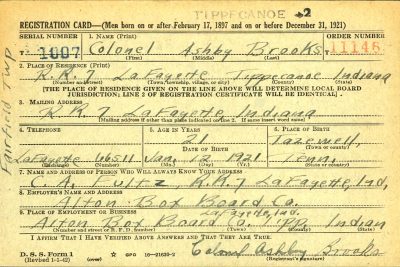 TIPPECANOE 2
REGISTRATION CARD—(Men born on or after February 17, 1897 and on or before December 31, 1921)
SERIAL NUMBER 1. NAME (Print) ORDER NUMBER
1007 Colonel Ashby Brooks 11146
(First) (Middle) (Last)
2. PLACE OF RESIDENCE (Print)
R.R. 7 LaFayette Tippecanoe Indiana
(Number and street) (Town, township, village, or city) (County) (State)
[THE PLACE OF RESIDENCE GIVEN ON THE LINE ABOVE WILL DETERMINE LOCAL BOARD
JURISDICTION; LINE 2 OF REGISTRATION CERTIFICATE WILL BE IDENTICAL]
Fairfield Twp
3. MAILING ADDRESS
R.R. 7 LaFayette Indiana
[Mailing address if other than place indicated on line 2. If same insert word same]
4. TELEPHONE 5. AGE IN YEARS 6. PLACE OF BIRTH
21 Tazewell,
DATE OF BIRTH (Town or county)
LaFayette 66511 Jan. 12 1921 Tenn.
(Exchange) (Number) (Mo.) (Day) (Yr.) (State or country)
7. NAME AND ADDRESS OF PERSON WHO WILL ALWAYS KNOW YOUR ADDRESS
C. A. Fultz R.R. 7 LaFayette, Ind.
8. EMPLOYER'S NAME AND ADDRESS
Alton Box Board Co.
9. PLACE OF EMPLOYMENT OR BUSINESS LaFayette, Ind.
Alton Box Board Co. Tipp. Indian
(Number and street or R. F. D. number) (Town) (County) (State)
I AFFIRM THAT I HAVE VERIFIED ABOVE ANSWERS AND THAT THEY ARE TRUE.
D. S. S. Form 1 GPO 16—21630-2 Colonel Ashby Brooks
(Revised 1-5-42) (over) (Registrant's signature)